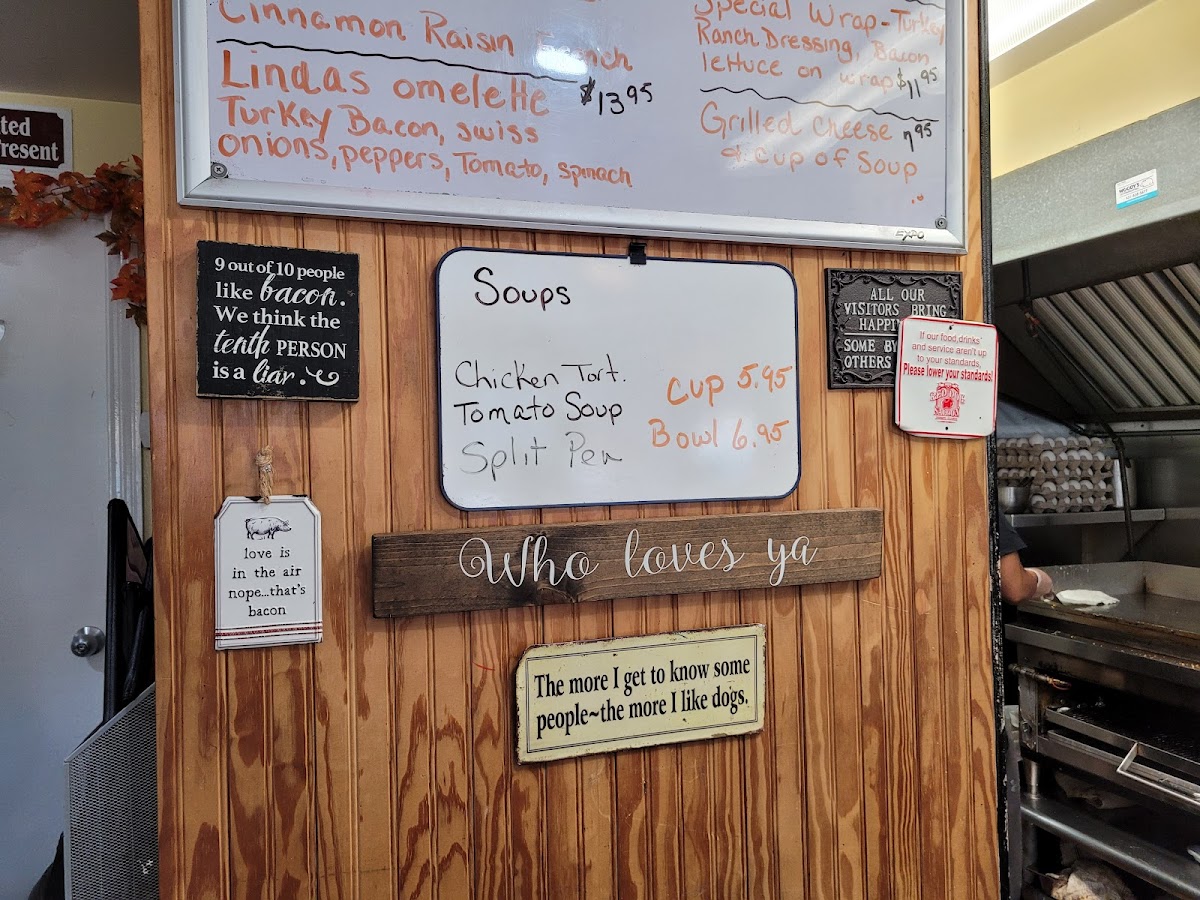 Cinnamon Raisin French
Lindas omelette $13.95
Turkey Bacon, swiss
onions, peppers, Tomato, spinach
Special Wrap - Turkey
Ranch Dressing, Bacon
lettuce on wrap $11.95
Grilled cheese 7.95
& cup of Soup
EXPO
ted
Present
9 out of 10 people
like bacon.
We think the
tenth PERSON
is a liar.
Soups
Chicken Tort.
Tomato Soup
Split Pea
Cup 5.95
Bowl 6.95
ALL OUR
VISITORS BRING
HAPPI
SOME BY
OTHERS
If our food, drinks
and service aren't up
to your standards,
Please lower your standards!
love is
in the air
nope...that's
bacon
Who loves ya
The more I get to know some
people~the more I like dogs.